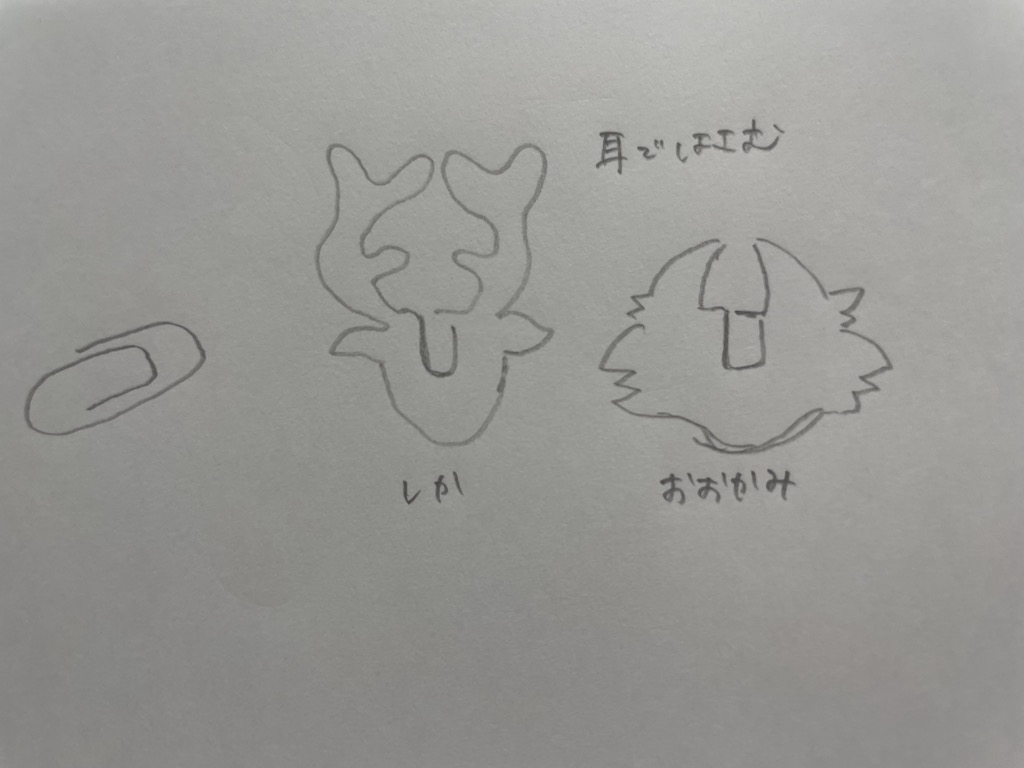 耳ではさむ
しか
おおかみ